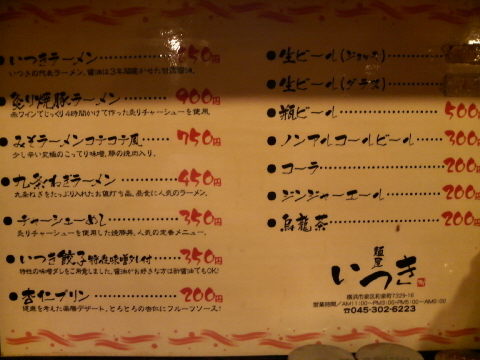 いつきラーメン 50円
いつきの代表ラーメン。醤油は3年間寝かせた甘露醤油。
炙り焼豚ラーメン 900円
赤ワインでじっくり4時間かけて作った炙りチャーシューを使用。
みそラーメンコテコテ風 750円
少し辛い究極のこってり味噌。豚の挽肉入り。
九条ねぎラーメン 450円
九条ねぎをたっぷり入れた
人気のラーメン。
チャーシューめし 350円
炙りチャーシューを使用した焼豚丼。人気の定番メニュー。
いつき餃子 特性味噌ダレ付 350円
特性の味噌ダレをご用意しました。醤油がお好きな方は酢醤油でもOK!
杏仁プリン 200円
健康を考えた薬膳デザート。とろとろの杏仁にフルーツソース!
生ビール(ジョッキ)
生ビール(グラス)
瓶ビール 500円
ノンアルコールビール 300円
コーラ 200円
ジンジャーエール 200円
烏龍茶 200円
麺屋
いつき
横浜市泉区和泉町7329-16
営業時間/AM11:00~PM3:00・PM5:00~AM0:00
☎045-302-6223